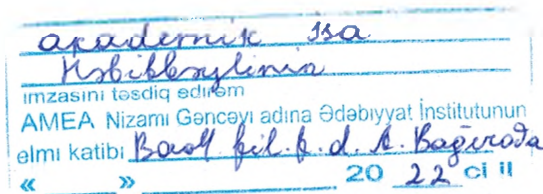 akademik İsa
Həbibbəylinin
imzasını təsdiq edirəm
AMEA Nizami Gəncəvi adına Ədəbiyyat İnstitutunun
elmi katibi fil.f.d. A. Bağırova
« » 20 22 ci il